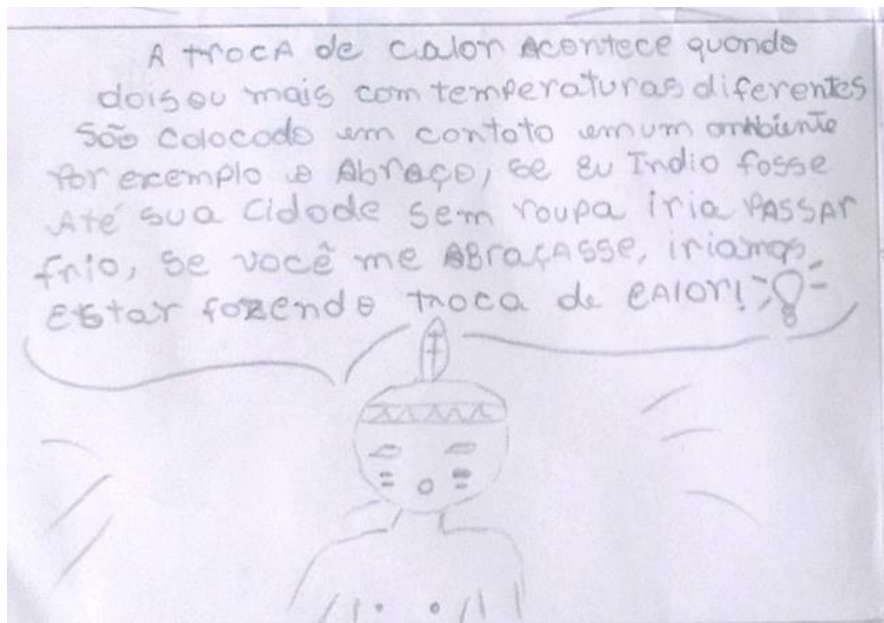 A troca de calor Acontece quando
dois ou mais com temperaturas diferentes
são colocado em contato em um ambiente
Por exemplo o Abraço, se Eu Indio fosse
Até sua cidade sem roupa iria PASSAr
frio, se você me ABraçAsse, iriamos
Estar fazendo troca de cAlor!